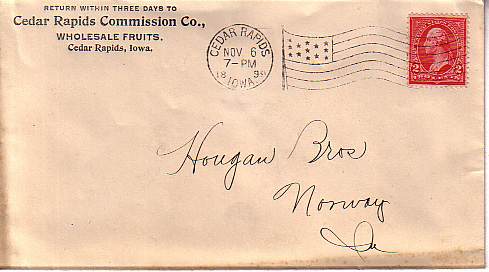 RETURN WITHIN THREE DAYS TO
Cedar Rapids Commission Co.,
WHOLESALE FRUITS.
Cedar Rapids, Iowa.
CEDAR RAPIDS
NOV 6
7-PM
IOWA
2 2
Hougan Bros
Norway
Ia